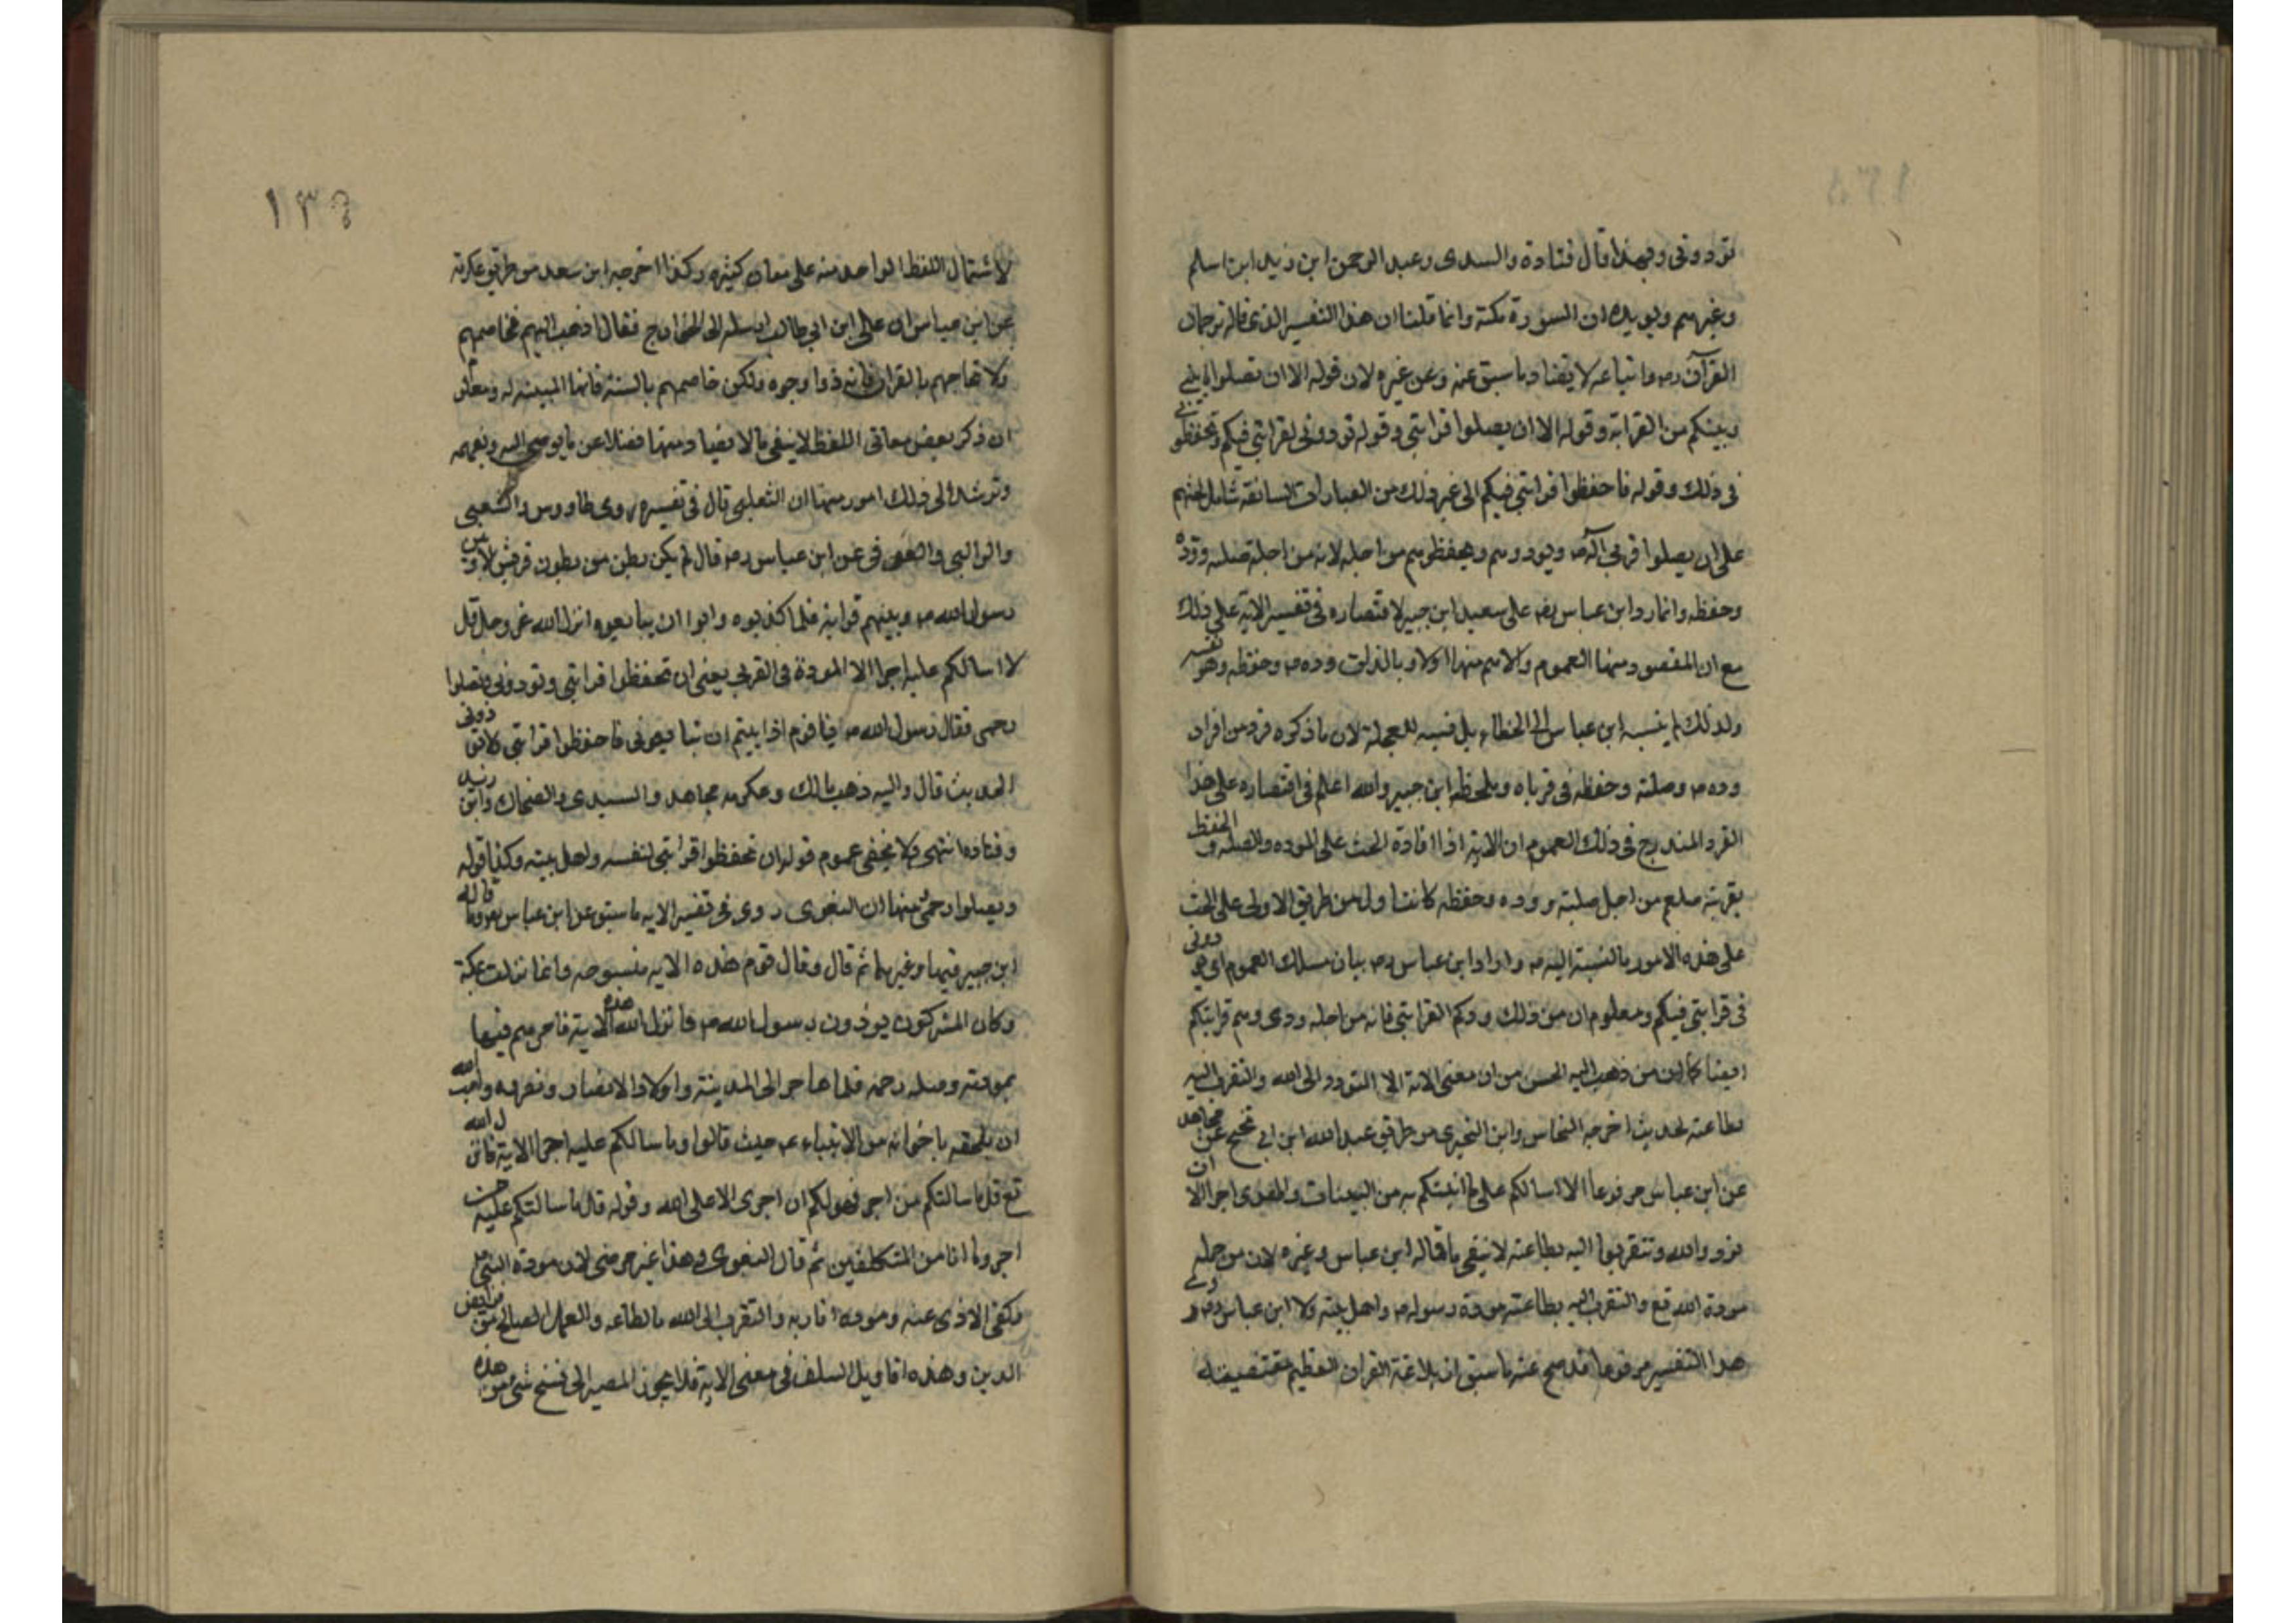 تودوونى وبهذا قال قتادة والسدى وعبد الرحمن ابن زيد ابن اسلم
وغيرهم ويويده ان السورة مكتة وانما قلنا ان هذا التفسير الذى قاله ترجمان
القرآن رض واتباعه لا يضاد ما سبق عنه وعن غيره لان قوله الا ان تصلوا ما بينى
وبينكم من القرابة وقوله الا ان يصلوا قرابتى وقوله تودونى لقرابتى فيكم وتحفظونى
فى ذلك وقوله فاحفظوا قرابتى فيكم الى غير ذلك من العبارات السابقة شامل لحثهم
على ان يصلوا قربى آله ص ويودوهم ويحفظوهم من اجله لانه من اجلة صلته ووده
وحفظه وانما رد ابن عباس رض على سعيد ابن جبير لاقتصاره فى تفسير الاية على ذلك
مع ان المقصود منها العموم والاهم منها اولا وبالذات وده ص وحفظه وهو نفسه
ولذلك لم ينسبه ابن عباس الى الخطاء بل نسبه للعجلة لان ما ذكره فرد من افراد
وده ص وصلته وحفظه فى قرباه وملحظ ابن جبير والله اعلم فى اقتصاره على هذا
الفرد المندرج فى ذلك العموم ان الاية اذا افادة الحث على الموده والصله والحفظ
لقربته صلعم من اجل صلته ووده وحفظه كانت اول من طريق الاولى على الحث
على هذه الامور بالنسبة اليه ص واراد ابن عباس رض بيان مسلك العموم اى تودونى
فى قرابتى فيكم ومعلوم ان من ذلك ودكم القرابتى فانه من اجله ودى وهم قرابتكم
ايضا كما ان من ذهب اليه الحسن من ان معنى الاية الا التودد الى الله والتقرب اليه
بطاعته لحديث اخرجه النحاس وابن النجيرى من طريق عبد الله ابن ابى نجيح عن مجاهد
عن ابن عباس مرفوعا الا اسالكم على ما اتيتكم به من البينات والهدى اجرا الا ان
تودوا الله وتتقربوا اليه بطاعته لا ينفى ما قاله ابن عباس وغيره لان من جمله
مودة الله تع والتقرب اليه بطاعته مودة رسوله ص واهل بيته ولا ابن عباس رض روى
هذا التفسير مرفوعا قد صح عنه ما سبق اذ بلاغة القران العظيم مقتضيه
١٣٩
لاشتمال اللفظ الواحد منه على معان كثيره وكذا اخرجه ابن سعد من طريق عكرمة
عن ابن عباس ان على ابن ابى طالب ارسله الى الخوارج فقال اذهب اليهم فخاصمهم
ولا تحاجهم بالقران فانه ذوا وجوه ولكن خاصمهم بالسنة فانها المبينه له ومعلوم
ان ذكر بعض معانى اللفظ لا ينفى ما لا يضاد منها فضلا عن ما يوصى اليه ويعمه
وترشد الى ذلك امور منها ان الثعلبى قال فى تفسيره روى طاووس والشعبى
والوالبى والعوفى عن ابن عباس رض قال لم يكن بطن من بطون قريش الا وبين
رسول الله ص وبينهم قرابة فلما كذبوه وابوا ان يبايعوه انزل الله عز وجل قل
لا اسالكم عليه اجرا الا المودة فى القربى يعنى ان تحفظوا قرابتى وتودونى وتصلوا
رحمى فقال رسول الله ص يا قوم اذا ابيتم ان تبايعونى فاحفظوا قرابتى ولا تؤذونى
الحديث قال واليه ذهب مالك وعكرمه مجاهد والسدى والضحاك وابن زيد
وقتاده انتهى ولا يخفى عموم قوله ان تحفظوا قرابتى لنفسه ولاهل بيته وكذا قوله
وتصلوا رحمى منها ان البغوى روى فى تفسير الايه ما سبق عن ابن عباس رض وما قاله
ابن جبير فيها وغيرهما ثم قال وقال قوم هذه الايه منسوخه وانما نزلت بمكة
وكان المشركون يوذون رسول الله ص فانزل الله هذه الاية فامرهم فيها
بمودته وصله رحمه فلما هاجر الى المدينة واواه الانصار ونصره واحب الله
ان يلحقه باخوانه من الانبياء عم حيث قالوا وما سالكم عليه اجر الاية فانزل الله
تع قل ما سالتكم من اجر فهو لكم ان اجرى الا على الله وقوله قل ما سالتكم عليه من
اجر وما انا من المتكلفين ثم قال البغوى وهذا غير مرضى لان مودة النبى صلى
وكف الاذى عنه وموده اقاربه والتقرب الى الله بالطاعه والعمل الصالح من فرايض
الدين وهذه اقاويل السلف فى معنى الاية فلا يجوز المصير الى نسخ شئ من هذه